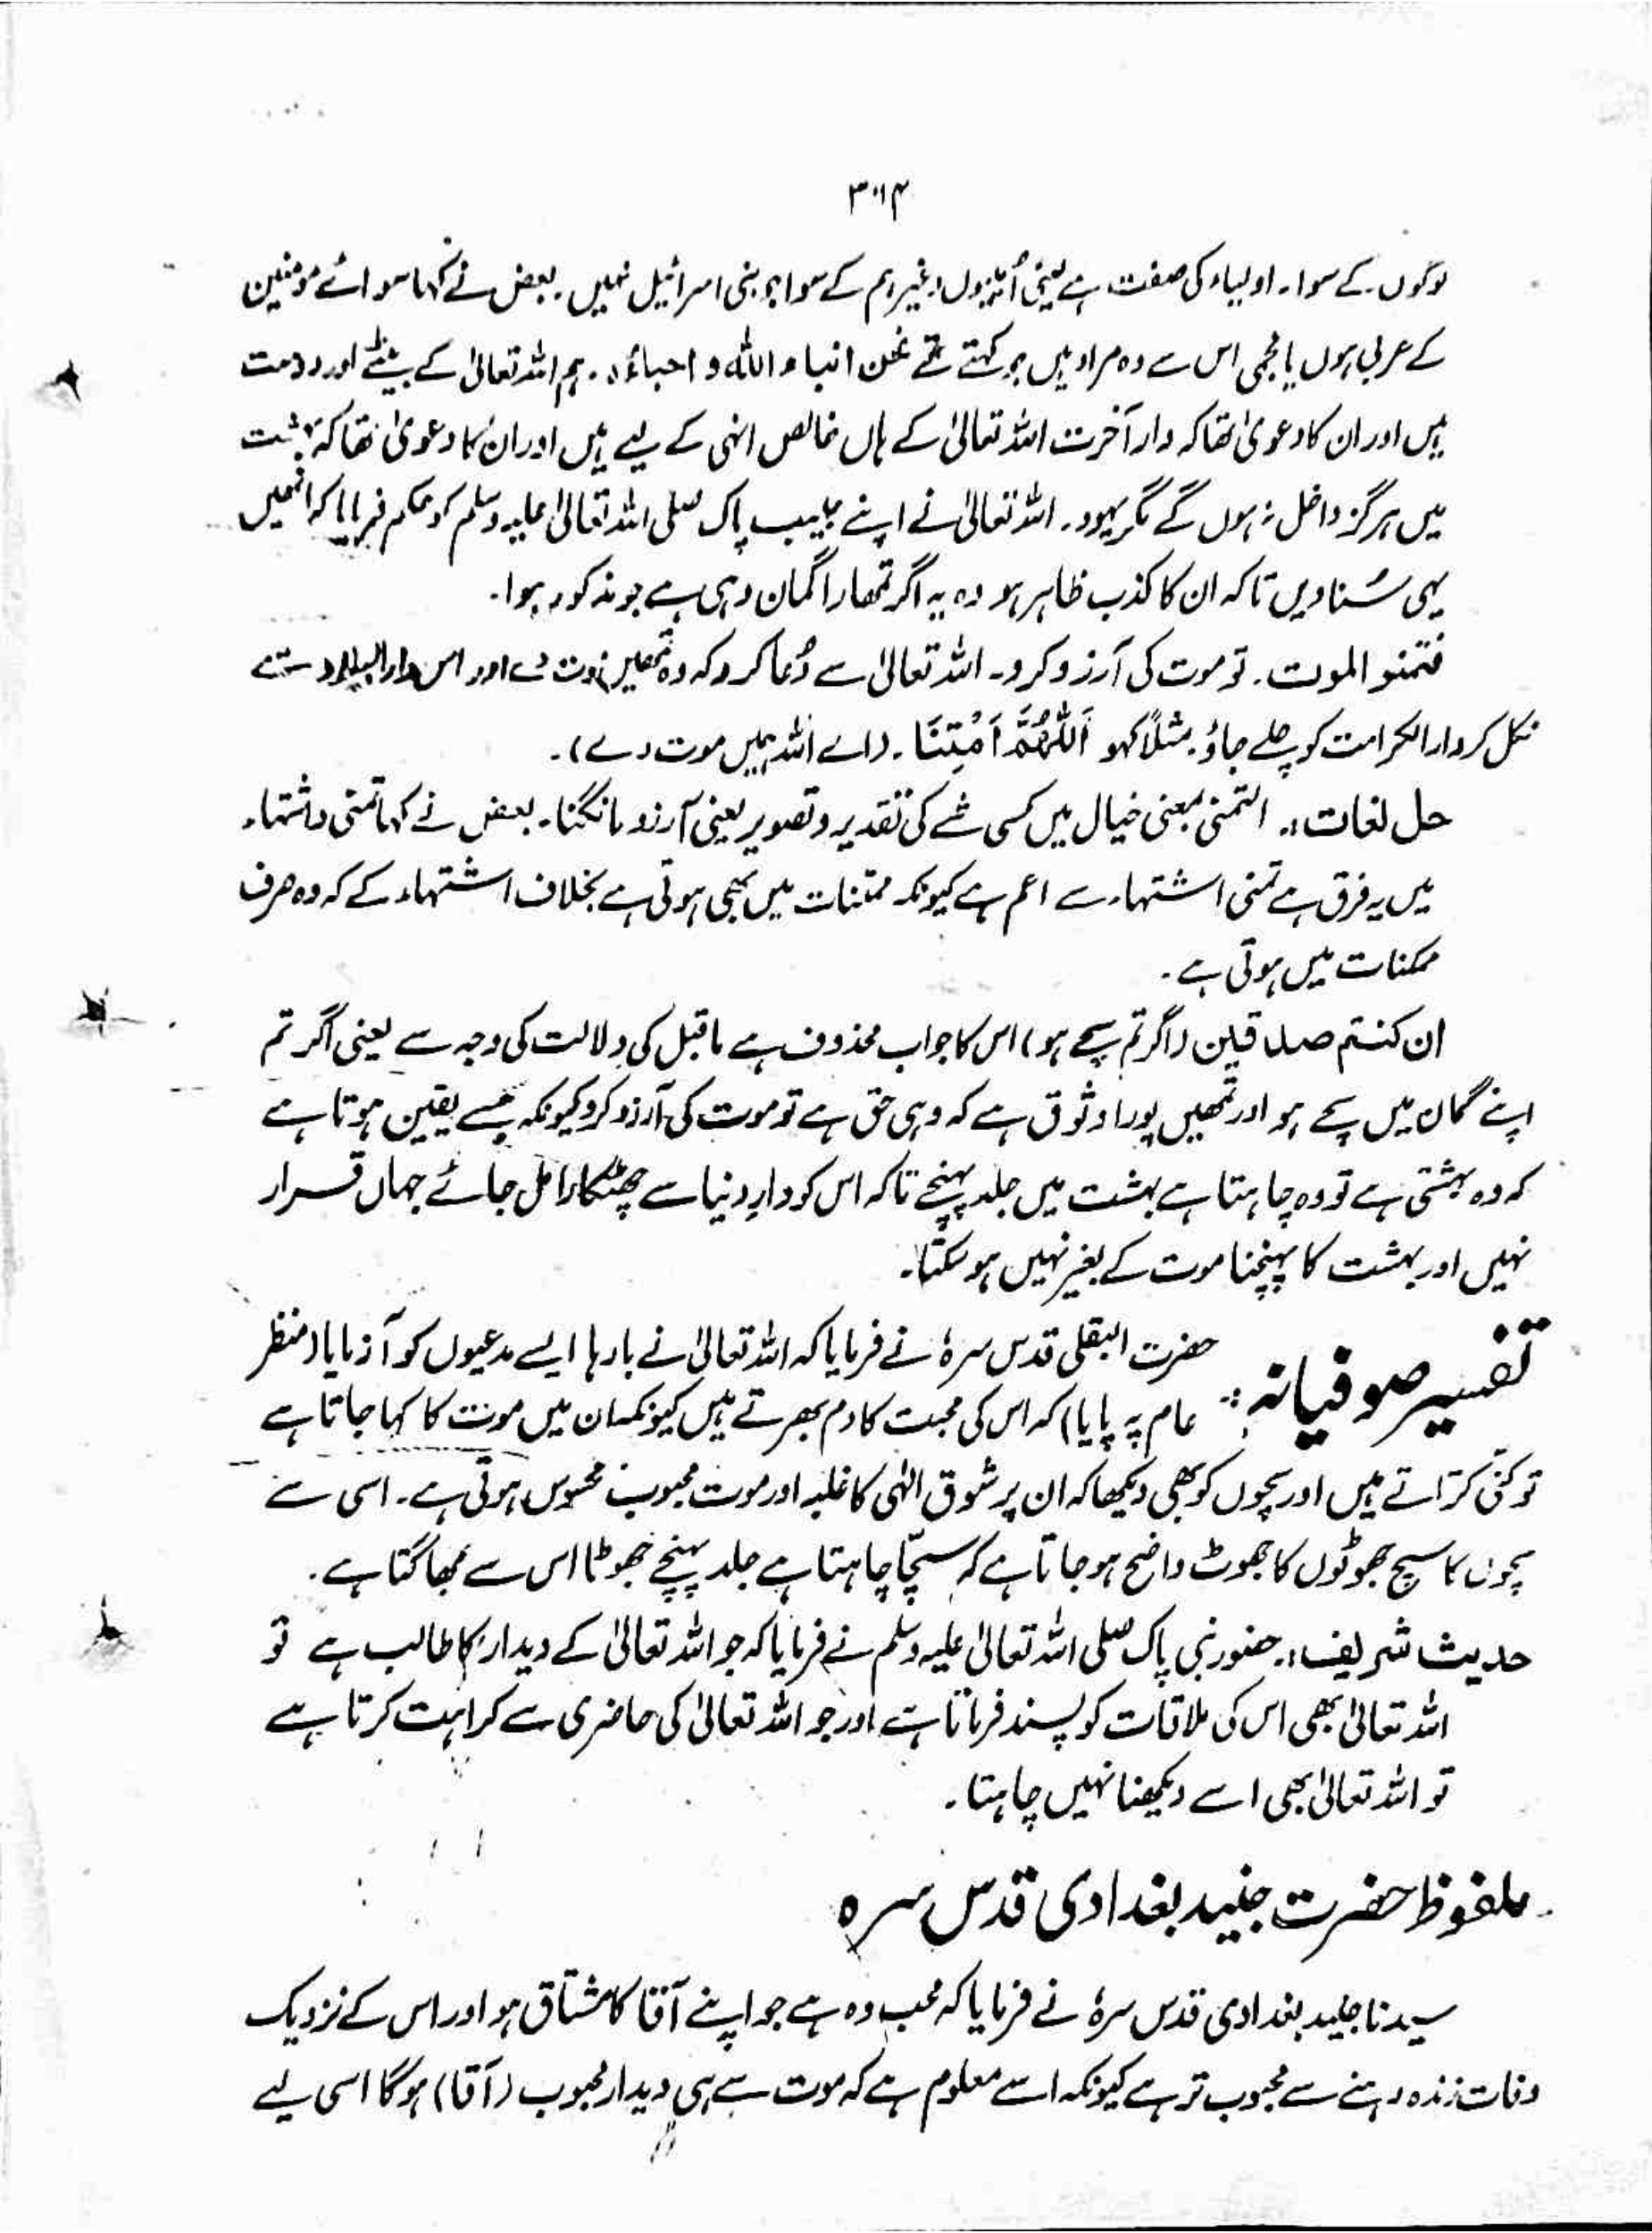 ۳۱۴
لوگوں کے سوا۔ اولیاء کی صفت ہے یعنی اُمیّوں وغیرہم کے سوا جو بنی اسرائیل نہیں۔ بعض نے کہا سوائے مومنین
کے عربی ہوں یا عجمی اس سے وہ مراد ہیں جو کہتے تھے نحن ابناء اللہ و احباؤہ۔ ہم اللہ تعالیٰ کے بیٹے اور دوست
ہیں اور ان کا دعویٰ تھا کہ دار آخرت اللہ تعالیٰ کے ہاں خالص انہی کے لیے ہیں اور ان کا دعویٰ تھا کہ بہشت
میں ہرگز داخل نہ ہوں گے مگر یہود۔ اللہ تعالیٰ نے اپنے حبیب پاک صلی اللہ تعالیٰ علیہ وسلم کو حکم فرمایا کہ انھیں
یہی سُنا دیں تاکہ ان کا کذب ظاہر ہو وہ یہ اگر تمھارا گمان وہی ہے جو مذکور ہوا۔
فتمنو الموت۔ تو موت کی آرزو کرو۔ اللہ تعالیٰ سے دُعا کرو کہ وہ تمھیں موت دے اور اس دار البلاد سے
نکل کر دار الکرامت کو چلے جاؤ۔ مثلاً کہو اَللّٰهُمَّ اَمِتْنَا۔ (اے اللہ ہمیں موت دے)۔
حل لغات :۔ التمنی بمعنی خیال میں کسی شے کی تقدیر و تصویر یعنی آرزو مانگنا۔ بعض نے کہا تمنی و اشتہاء
میں یہ فرق ہے تمنی اشتہاء سے اعم ہے کیونکہ ممتنات میں بھی ہوتی ہے بخلاف اشتہاء کے کہ وہ صرف
ممکنات میں ہوتی ہے۔
ان کنتم صادقین (اگر تم سچے ہو) اس کا جواب محذوف ہے ماقبل کی دلالت کی وجہ سے یعنی اگر تم
اپنے گمان میں سچے ہو اور تمھیں پورا وثوق ہے کہ وہی حق ہے تو موت کی آرزو کرو کیونکہ جسے یقین ہوتا ہے
کہ وہ بہشتی ہے تو وہ چاہتا ہے بہشت میں جلد پہنچے تاکہ اس کو دارِ دنیا سے چھٹکارا مل جائے جہاں قرار
نہیں اور بہشت کا پہنچنا موت کے بغیر نہیں ہو سکتا۔
تفسیر صوفیانہ :۔ حضرت البقلی قدس سرہٗ نے فرمایا کہ اللہ تعالیٰ نے بارہا ایسے مدعیوں کو آزمایا (منظر
عام پہ پایا) کہ اس کی محبت کا دم بھرتے ہیں کیونکہ ان میں موت کا کہا جاتا ہے
تو کنّی کتراتے ہیں اور سچوں کو بھی دیکھا کہ ان پر شوق الٰہی کا غلبہ اور موت محبوب محسوس ہوتی ہے۔ اسی سے
سچوں کا سچ جھوٹوں کا جھوٹ واضح ہو جاتا ہے کہ سچّا چاہتا ہے جلد پہنچے جھوٹا اس سے بھاگتا ہے۔
حدیث شریف :۔ حضور نبی پاک صلی اللہ تعالیٰ علیہ وسلم نے فرمایا کہ جو اللہ تعالیٰ کے دیدار کا طالب ہے تو
اللہ تعالیٰ بھی اس کی ملاقات کو پسند فرماتا ہے اور جو اللہ تعالیٰ کی حاضری سے کراہت کرتا ہے
تو اللہ تعالیٰ بھی اسے دیکھنا نہیں چاہتا۔
ملفوظ حضرت جنید بغدادی قدس سرہ
سیدنا جنید بغدادی قدس سرہٗ نے فرمایا کہ محب وہ ہے جو اپنے آقا کا مشتاق ہو اور اس کے نزدیک
وفات زندہ رہنے سے محبوب تر ہے کیونکہ اسے معلوم ہے کہ موت سے ہی دیدار محبوب (آقا) ہوگا اسی لیے